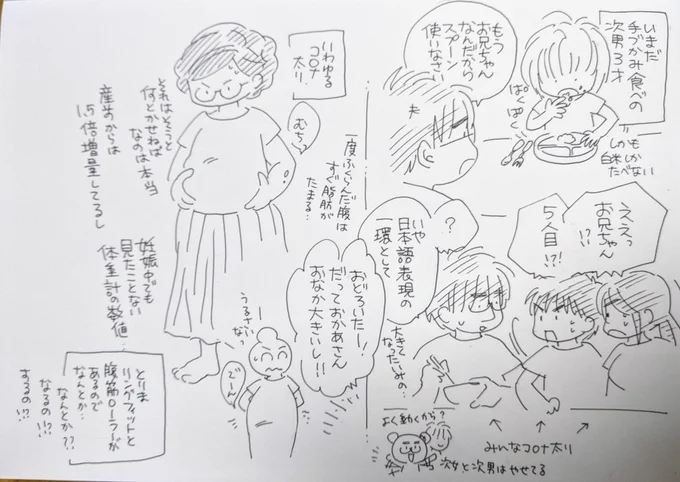 いまだ
手づかみ食べの
次男3才
ぱくぱく
しかも
白米しか
たべない
もう
お兄ちゃん
なんだから
スプーン
使いなさい
ええっ
お兄ちゃん
!?
5人目!?!
?
いや
日本語表現の
一環として
大きく
なったいみの…
おどろいたー!
だっておかあさん
おなか大きいし!!
みんなコロナ太り
よく動くから?
次女と次男はやせてる
いわゆる
コロナ
太り
むちっ
一度ふくらんだ腹は
すぐ脂肪が
たまる…
それはそうと
何とかせねば
なのは本当
産前からは
1.5倍増量してるし
妊娠中でも
見たことない
体重計の数値
うるさい
なっ
でーん
とりま
リングフィットと
腹筋ローラーが
あるので
なんとか…
なんとか??
なるの!?
するの!?